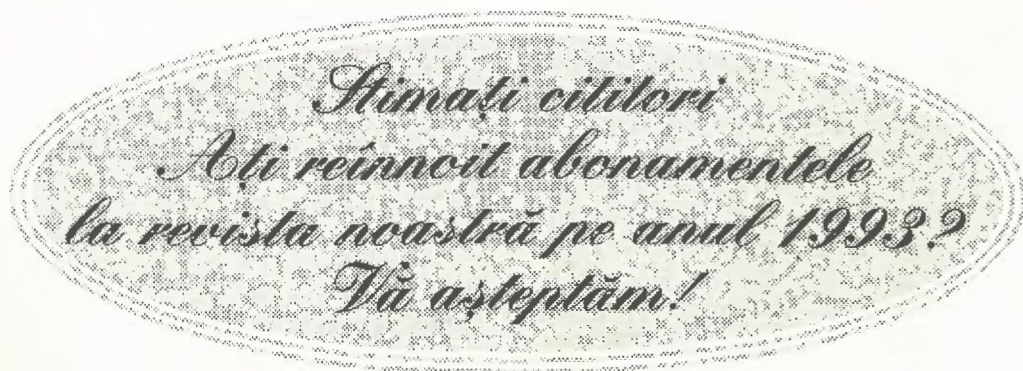 Stimați cititori
Ați reînnoit abonamentele
la revista noastră pe anul 1993?
Vă așteptăm!